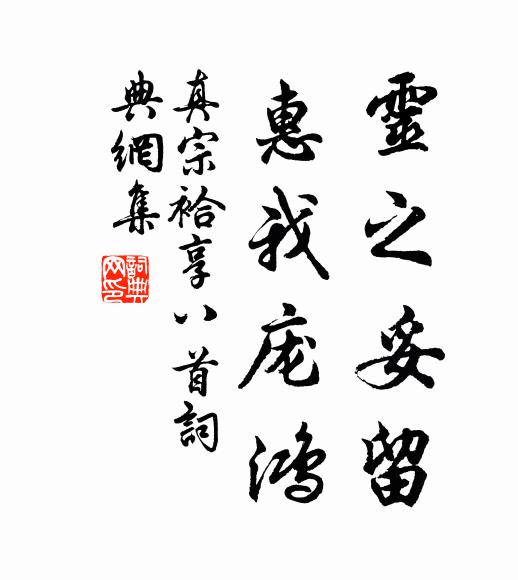 靈之妥留
惠我庬鴻
真宗祫享八首詞
典網集
詞典網印